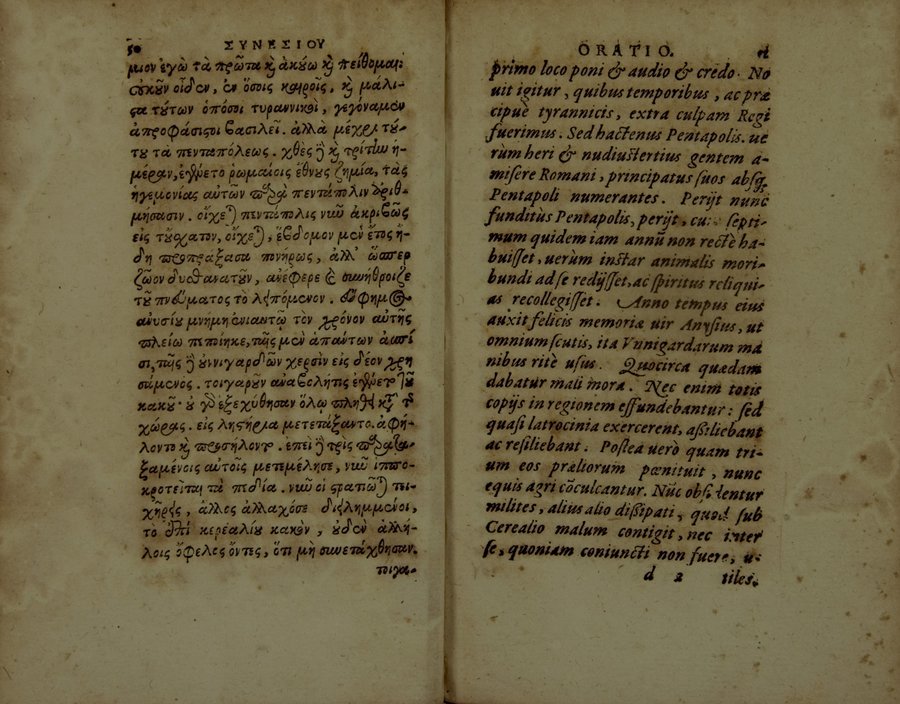 50 ΣΥΝΕΣΙΟΥ
μιον ἐγὼ τὰ πρῶτα καὶ ἀκούω καὶ πείθομαι
οὐκοῦν οἶδεν, ἐν ὅσοις καιροῖς, καὶ μάλι-
στα τούτων ὁπόσοι τυραννικοὶ, γεγόναμεν
ἀπροφάσιστοι βασιλεῖ. ἀλλὰ μέχρι τού-
του τὰ πενταπόλεως. χθὲς ἢ καὶ τρίτην ἡ-
μέραν, ἐγένετο ῥωμαίοις ἔθνους ζημία, τὰς
ἡγεμονίας αὐτῶν παρὰ πεντάπολιν ἀριθ-
μήσασιν. οἴχεται πεντάπολις νῦν ἀκριβῶς
εἰς τοὔσχατον, οἴχεται, ἕβδομον μὲν ἔτος ἤ-
δη προπράξασα πονήρως, ἀλλ' ὥσπερ
ζῶον δυσθανατοῦν, ἀνέφερε καὶ συνήθροιζε
τοῦ πνεύματος τὸ λειπόμενον.
ἀνυσίου μνήμη ἐνιαυτῷ τὸν χρόνον αὐτῆς
πλείω πεποίηκε, πᾶς μὲν ἁπάντων ἀσπί
σι, πᾶς ἢ οὐννιγαρδῶν χερσὶν εἰς δέον χρη
σάμενος. τοιγαροῦν ἀναβολή τις ἐγένετο τοῦ
κακοῦ· οὐ γὰρ ἐξεχύθησαν ὅλῳ πλήθει κατὰ τῆς
χώρας. εἰς λῃστήρια μετετάξαντο. ἀφή-
λοντο καὶ προσήλοντο. ἐπεὶ ἢ τρὶς παραταξ-
ξαμένοις αὐτοῖς μετεμέλησε, νῦν ἱππο-
κροτεῖται τὰ πεδία. νῦν οἱ στρατιῶται τει-
χήρεις, ἄλλος ἀλλαχόσε διειλημμένοι,
τὸ ἐπὶ κερεαλίου κακὸν, οὐδὲν ἀλλή-
λοις ὄφελος ὄντες, ὅτι μὴ συνετάχθησαν.
τοιγα-
ORATIO.
primo loco poni & audio & credo. No
uit igitur, quibus temporibus, ac præ
cipue tyrannicis, extra culpam Regi
fuerimus. Sed hactenus Pentapolis. ue
rum heri & nudiustertius gentem a-
misere Romani, principatus suos absq;
Pentapoli numerantes. Perijt nunc
funditùs Pentapolis, perijt, cum septi-
mum quidem iam annū non rectè ha-
buisset, uerum instar animalis mori-
bundi ad se redijsset, ac spiritus reliqui-
as recollegisset. Anno tempus eius
auxit felicis memoriæ uir Anysius, ut
omnium scutis, ita Vunigardarum ma
nibus ritè usus. Quocirca quædam
dabatur mali mora. Nec enim totis
copijs in regionem effundebantur: sed
quasi latrocinia exercerent, assiliebant
ac resiliebant. Postea uerò quam tri-
um eos præliorum pœnituit, nunc
equis agri cōculcantur. Nūc obsidentur
milites, alius aliò dissipati, quod sub
Cerealio malum contigit, nec inter
se, quoniam coniuncti non fuere, u-
d 2 tiles,